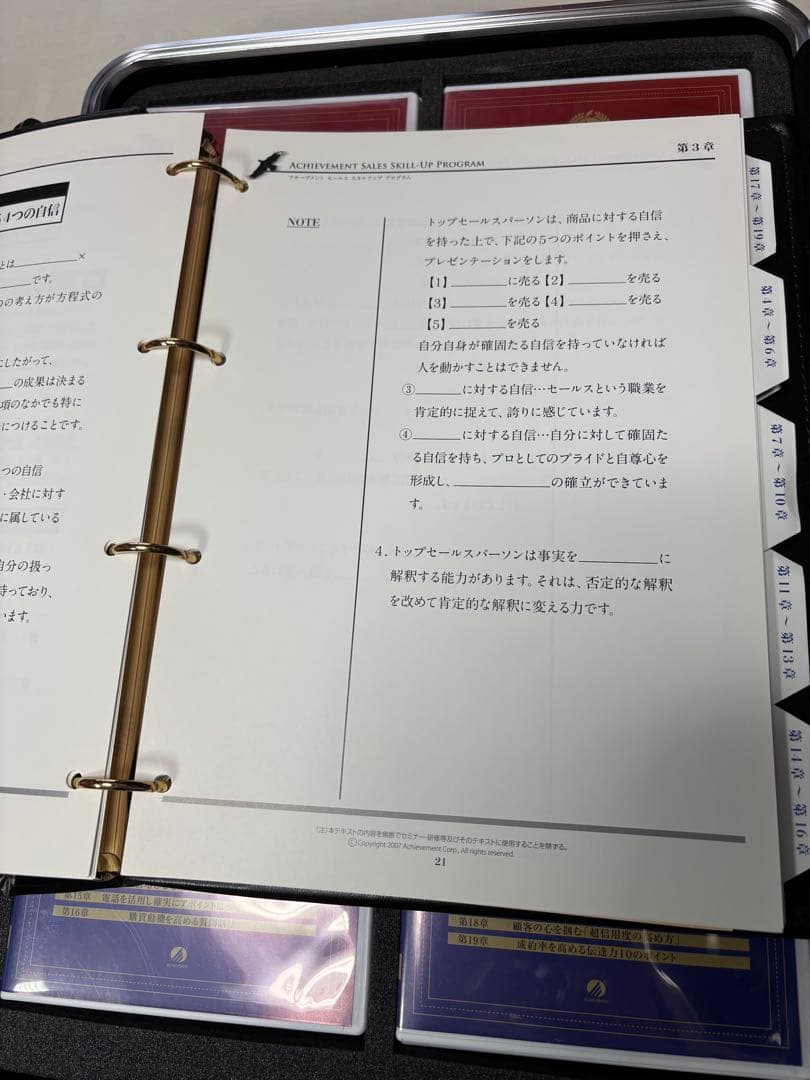 4つの自信
とは＿＿＿×
＿＿＿です。
の考え方が方程式の
にしたがって、
＿の成果は決まる
項のなかでも特に
につけることです。
つの自信
・会社に対す
に属している
自分の扱っ
持っており、
います。
ACHIEVEMENT SALES SKILL-UP PROGRAM
アチーブメント セールス スキルアップ プログラム
第3章
NOTE
トップセールスパーソンは、商品に対する自信
を持った上で、下記の5つのポイントを押さえ、
プレゼンテーションをします。
【1】＿＿＿に売る【2】＿＿＿を売る
【3】＿＿＿を売る【4】＿＿＿を売る
【5】＿＿＿を売る
自分自身が確固たる自信を持っていなければ
人を動かすことはできません。
③＿＿＿に対する自信…セールスという職業を
肯定的に捉えて、誇りに感じています。
④＿＿＿に対する自信…自分に対して確固た
る自信を持ち、プロとしてのプライドと自尊心を
形成し、＿＿＿の確立ができていま
す。
4. トップセールスパーソンは事実を＿＿＿に
解釈する能力があります。それは、否定的な解釈
を改めて肯定的な解釈に変える力です。
(注)本テキストの内容を無断でセミナー・研修等及びそのテキストに使用することを禁ずる。
©Copyright 2007 Achievement Corp., All rights reserved.
21
第17章～第19章
第4章～第6章
第7章～第10章
第11章～第13章
第14章～第16章
第15章 電話を活用し確実にアポイント
第16章 購買動機を高める質問話法
第18章 顧客の心を掴む「超信用度の高め方」
第19章 成約率を高める伝達力10のポイント